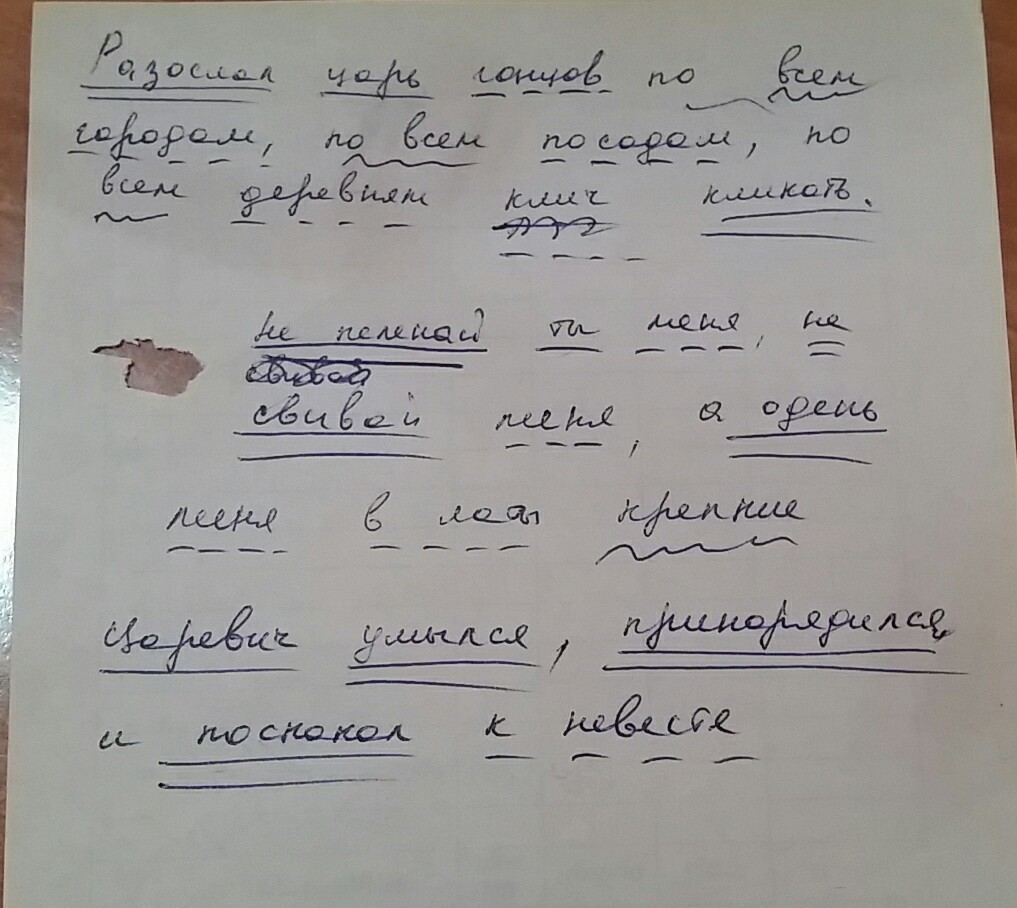 Разослал царь гонцов по всем
городам, по всем посадам, по
всем деревням клич кликать.
Не пеленай ты меня, не
свивай
свивай меня, а одень
меня в латы крепкие
Царевич умылся, принарядился,
и поскакал к невесте